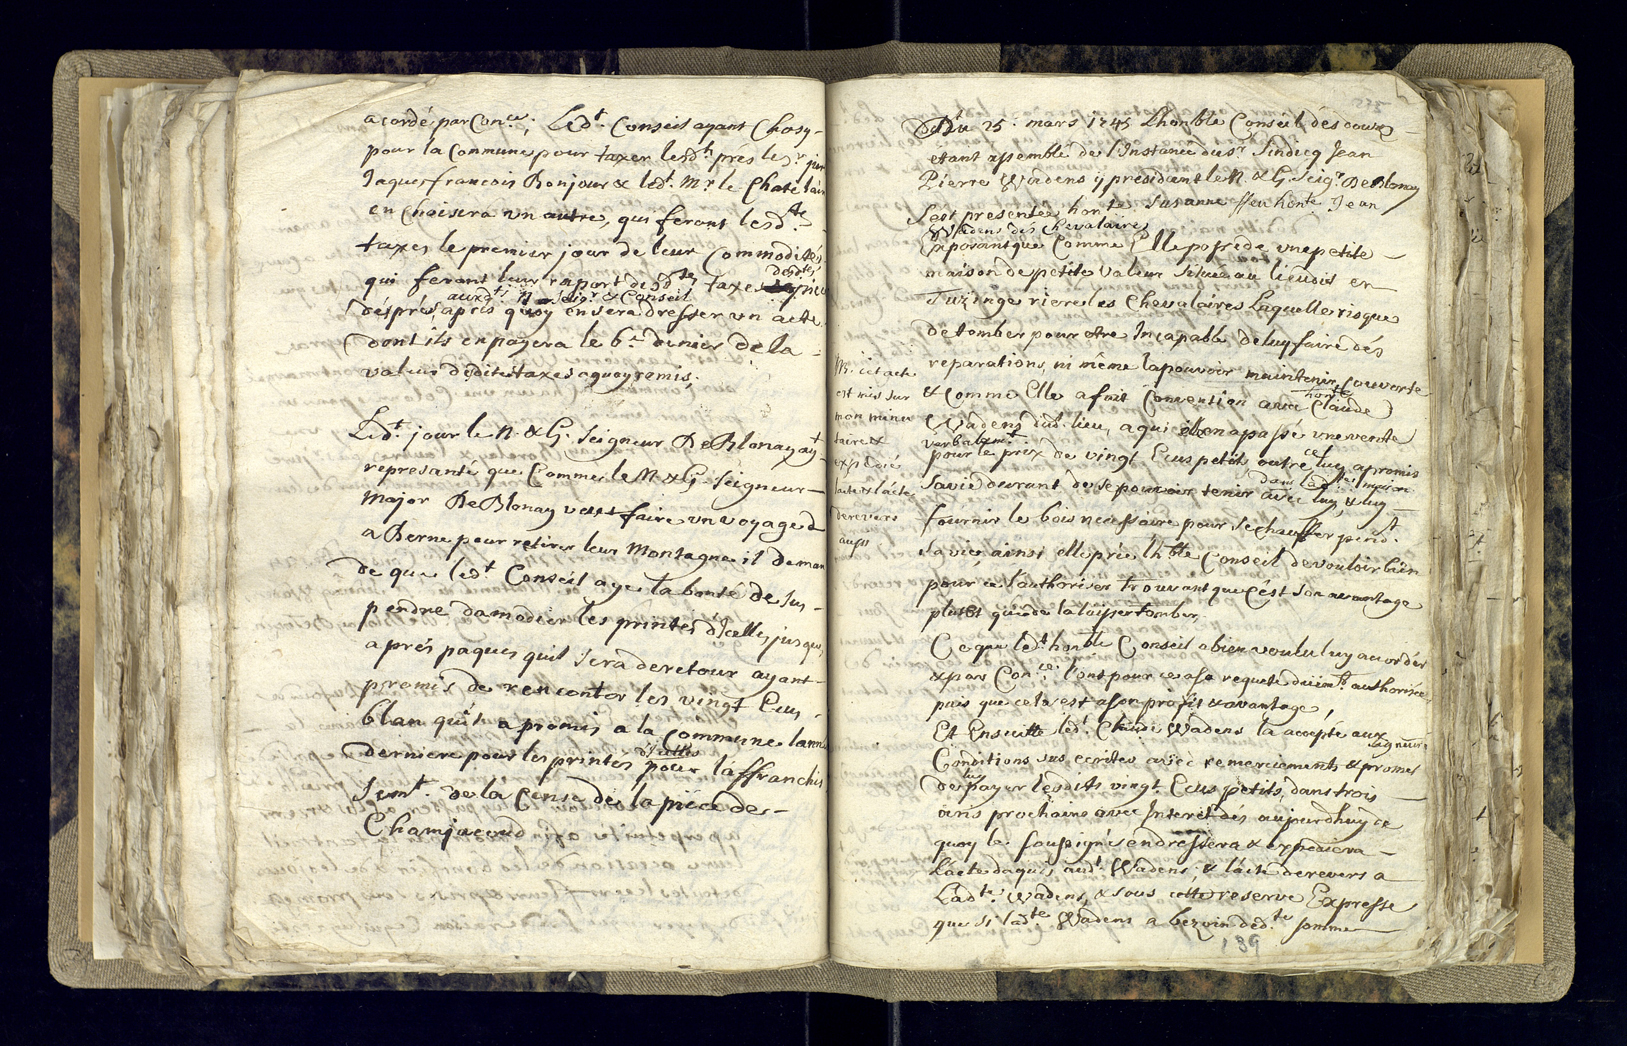 acordé par Con.ce; Led.t Conseil ayant Choisy
pour la Commune pour taxer lesd.ts prés le s.r juré
Jaques francois Bonjour & led.t Mr le Chatelain
en Choisera un autre, qui feront lesd.tes
taxes le premier jour de leur Commodités
qui feront leur raport desd.tes taxes desd.tes pieces
auxd.ts N. Seig.r & Conseil
désprés, aprés quoy en sera dresser un acte
dont ils en payera le 6.e denier de la
valeur désdites taxes aquoy remis;
Led.t jour le N. & G. Seigneur De Blonay ay.t
representé que Comme le N. & G. Seigneur
Major De Blonay veut faire un voyage
a Berne pour retirer leur Montagne il deman
de que led.t Conseil aye la bonté de sus
pendre damodier les printés d'Icelle, jusqu
aprés paques quil sera de retour ayant
promis de rencontrer les vingt Ecus
blan quil a promis a la Commune lannée
derniere pour les printés d'icelles pour laffranchis
sem.t de la Cense dés la piece de
Chamjacaud
273
Du 25.e mars 1745 Lhonble Conseil dés douze
etant assemblé de l'Instance du s.r Sindicq Jean
Pierre Wadens y présidant le N. & G. Seig.r De Blonay
Sest presentée hon.te Susanne ffeu hon.te Jean
Wadens dés Chevalaires
Exposant que Comme Elle possede une petite
maison de petite valeur située au lieudit en
Tuzinge riere les Chevalaires Laquelle risque
de tomber pour etre Incapable de luy faire dés
reparations, ni même la pouvoir maintenir couverte
& Comme Elle a fait Convention avec hon.te Claude
Wadens dud. lieu, a qui elle en a passé une vente
verbalem.t
pour le prix de vingt Ecus petits outre ce luy a promis
dans lad.te maison
sa vie durant de se pouvoir tenir avec luy, & luy
fournir le bois necessaire pour se chauffer pend.t
sa vie, ainsi elle prie lh.ble Conseil de vouloir bien
pour ce l'authoriser trouvant que cést son avantage
plutot que de la laisser tomber,
Ce que led.t hon.ble Conseil a bien voulu luy acorder
& par Con.ce l'ont pour ce a sa requete duëm.t authorisée
puis que cela est a son profit & avantage,
Et Ensuitte led.t Claude Wadens la accepté aux
Conditions sus ecrites avec remerciements & promet
de luy payer lesdits vingt Ecus petits, dans trois
ans prochains avec Interêt dés aujourdhuy ce
quoy le soussigné en dressera & expediera
Lacte daquis aud.t Wadens, & lacte de revers a
Lad.te Wadens, & sous cette reserve Expresse
que si lad.te Wadens a bezoin de d.te somme
139
NB. cet acte
est mis sur
mon minu
taire &
expedié
lacte & lacte
de revers
aussi